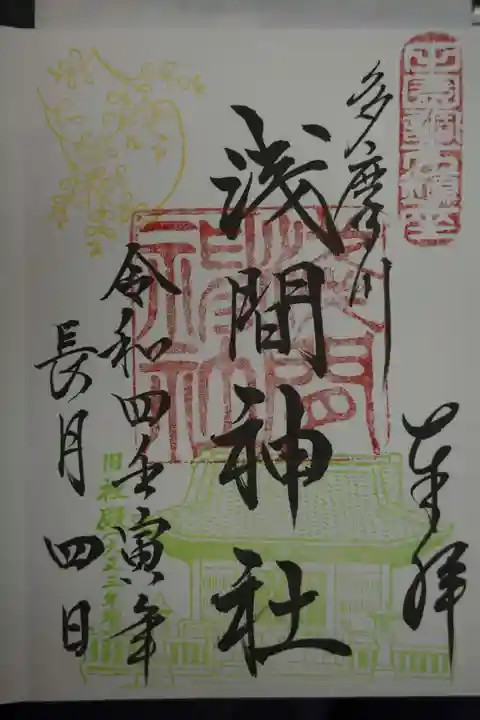 多摩川
奉拝
浅間神社
令和四壬寅年
長月四日
浅間神社